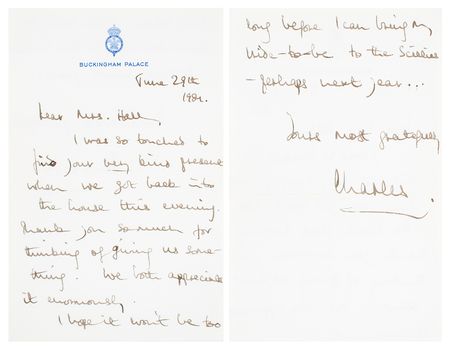 BUCKINGHAM PALACE
June 29th
1981.
Dear Mrs. Hall,
I was so touched to
find your very kind present
when we got back into
the house this evening.
Thank you so much for
thinking of giving us some-
thing. We both appreciate
it enormously.
I hope it won't be too
long before I can bring my
wife-to-be to the Scillies
- perhaps next year...
Yours most gratefully
Charles.